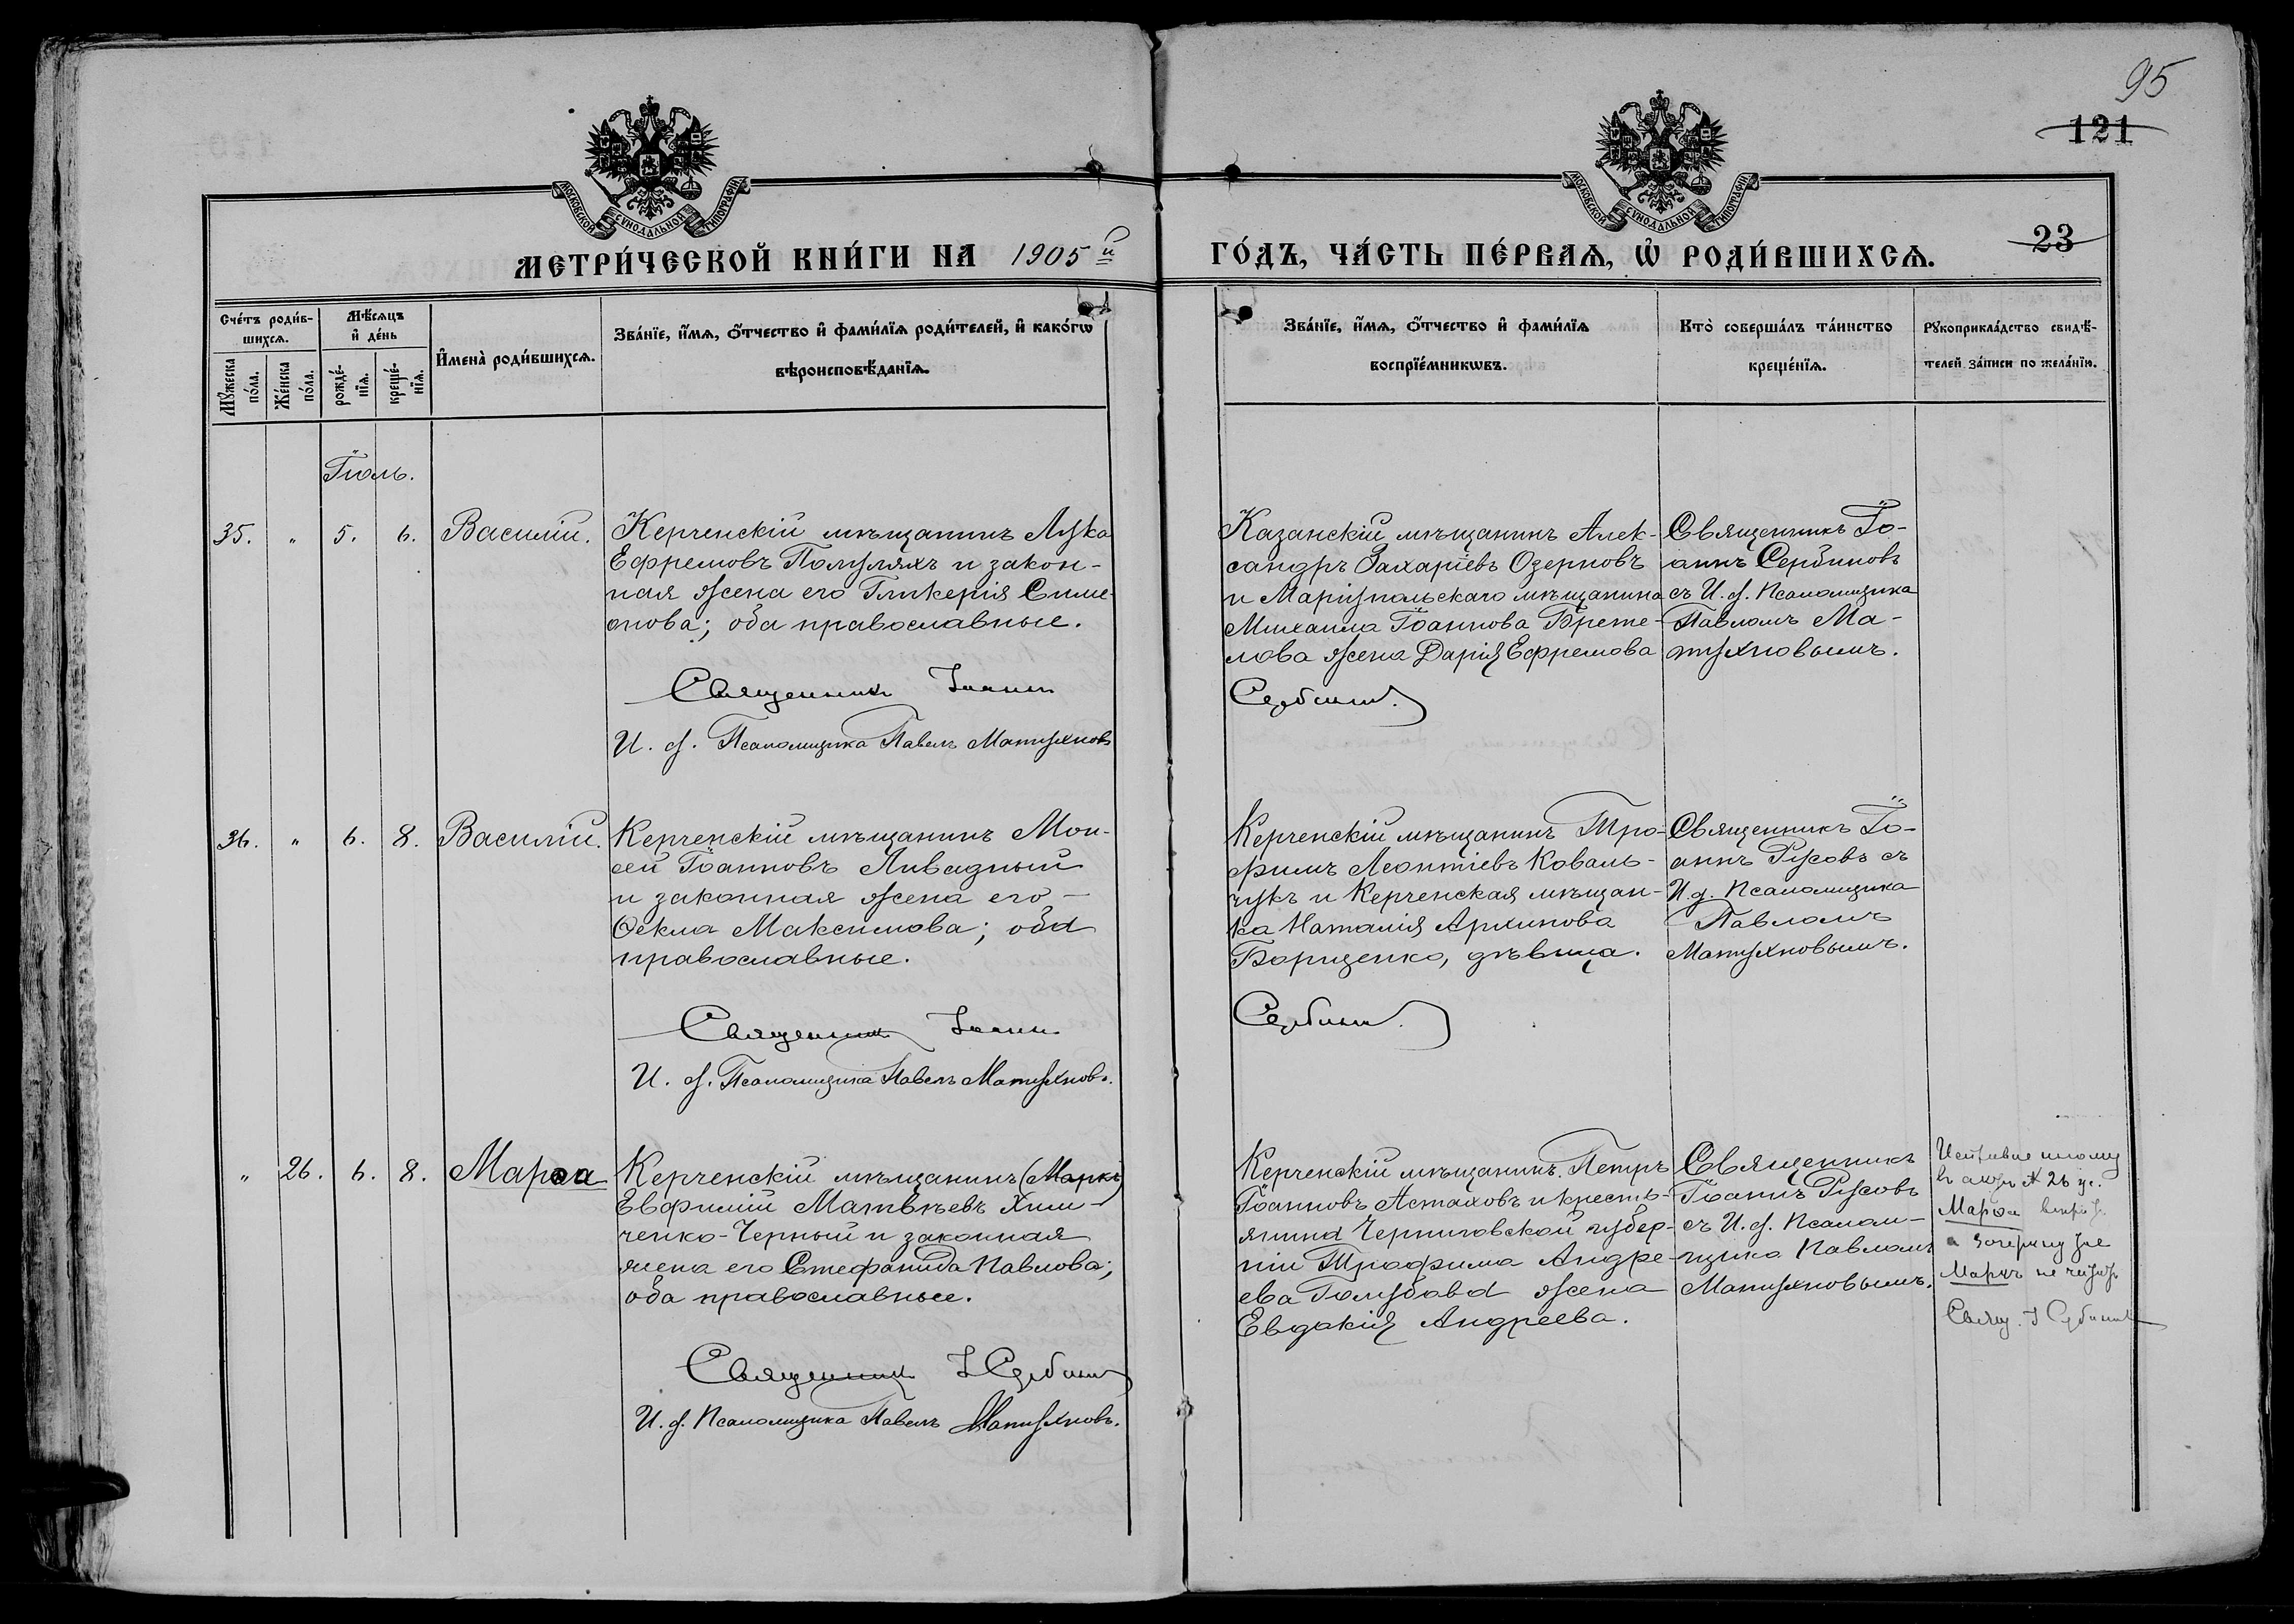 95
121
МОСКОВСКОЙ СУНОДАЛЬНОЙ ТИПОГРАФІИ
МОСКОВСКОЙ СУНОДАЛЬНОЙ ТИПОГРАФІИ
МЕТРИ́ЧЕСКОЙ КНИ́ГИ НА 1905й ГО́ДЪ, ЧА́СТЬ ПЕ́РВАѦ, Ѡ҆ РОДИ́ВШИХСѦ.
23
Сче́тъ роди́в-
шихсѧ.
Мꙋ́жеска
по́ла.
Же́нска
по́ла.
Мѣ́сѧцъ
и҆ де́нь
рожде́-
нїѧ.
креще́-
нїѧ.
И҆мена̀ роди́вшихсѧ.
Зва́нїе, и҆́мѧ, ѻ҆́тчество и҆ фами́лїѧ роди́телей, и҆ како́гѡ
вѣроисповѣ́данїѧ.
Зва́нїе, и҆́мѧ, ѻ҆́тчество и҆ фами́лїѧ
воспрїе́мникѡвъ.
Кто̀ соверша́лъ та́инство
креще́нїѧ.
Рꙋкоприкла́дство свидѣ́-
телей за́писи по жела́нїю.
Іюль.
35. „ 5. 6. Василій.
Керченскій мѣщанинъ Лука
Ефремовъ Полуляхъ и закон-
ная жена его Гликерія Симе-
онова; оба православные.
Священникъ Іоаннъ
И. д. Псаломщика Павелъ Матухновъ
Казанскій мѣщанинъ Алек-
сандръ Захаріевъ Озерновъ
и Маріупольскаго мѣщанина
Михаила Іоаннова Бреме-
лова жена Дарія Ефремова
Сербиновъ.
Священникъ Іо-
аннъ Сербиновъ
съ И. д. Псаломщика
Павломъ Ма-
тухновымъ.
36. „ 6. 8. Василій.
Керченскій мѣщанинъ Мои-
сей Іоанновъ Ливадный
и законная жена его
Ѳекла Максимова; оба
православные.
Священникъ Іоаннъ
И. д. Псаломщика Павелъ Матухновъ.
Керченскій мѣщанинъ Тро-
фимъ Леонтіевъ Коваль-
чукъ и Керченская мѣщан-
ка Наталія Архипова
Борщенко, дѣвица.
Сербиновъ.
Священникъ Іо-
аннъ Русовъ съ
И. д. Псаломщика
Павломъ
Матухновымъ.
„ 26. 6. 8. Марѳа
Керченскій мѣщанинъ (Маркъ)
Евфимій Матвѣевъ Хим-
ченко-Черный и законная
жена его Стефанида Павлова;
оба православные.
Священникъ І Сербиновъ
И. д. Псаломщика Павелъ Матухновъ.
Керченскій мѣщанинъ Петръ
Іоанновъ Астаховъ и кресть-
янина Черниговской губер-
ніи Трофима Андре-
ева Голубова жена
Евдокія Андреева.
Священникъ
Іоаннъ Русовъ
съ И. д. Псалом-
щика Павломъ
Матухновымъ.
№ 26
Марѳа
а зачеркнутое
Маркъ не читать
Свящ. І Сербиновъ